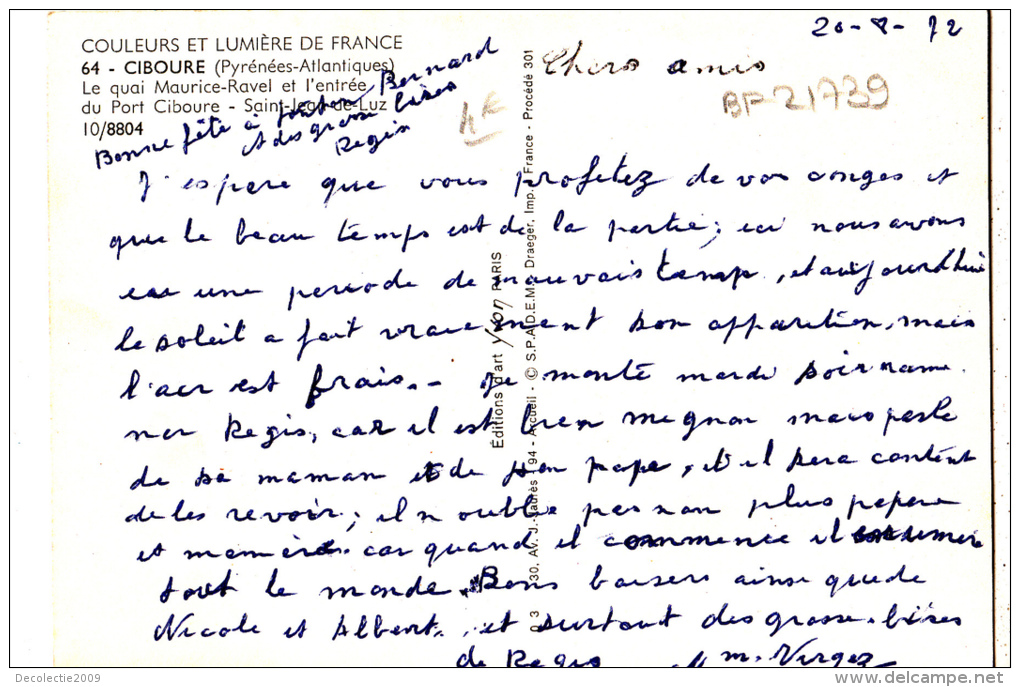 20-8-72
COULEURS ET LUMIÈRE DE FRANCE
64 - CIBOURE (Pyrénées-Atlantiques)
Le quai Maurice-Ravel et l'entrée
du Port Ciboure - Saint-Jean-de-Luz
10/8804
Bonne fête à tonton Bernard
et des grosse bises
Regis
4€
Chers amis
BF-21739
J'espere que vous profitez de vos conges et
que le beau temps est de la partie; ici nous avons
une periode de mauvais temp, et aujourd'hui
le soleil a fait vraiement son apparition, mais
l'aer est frais.- Je monte mardi soir rame
ner Regis, car il est bien mignon mais parle
de sa maman et de son papa, et il sera content
de les revoir; il n'oublie pas non plus pepere
et memère. car quand il commence il enumere
tout le monde. Bons baisers ainsi que de
Nicole et Albert, et surtout des grosse bises
de Regis M m. Vergez
Éditions d'art Yvon PARIS
30, Av. J.-Jaurès, 94 - Arcueil - © S.P.A.D.E.M. Draeger, Imp. France - Procédé 301
Decolectie2009
www.delcampe.net